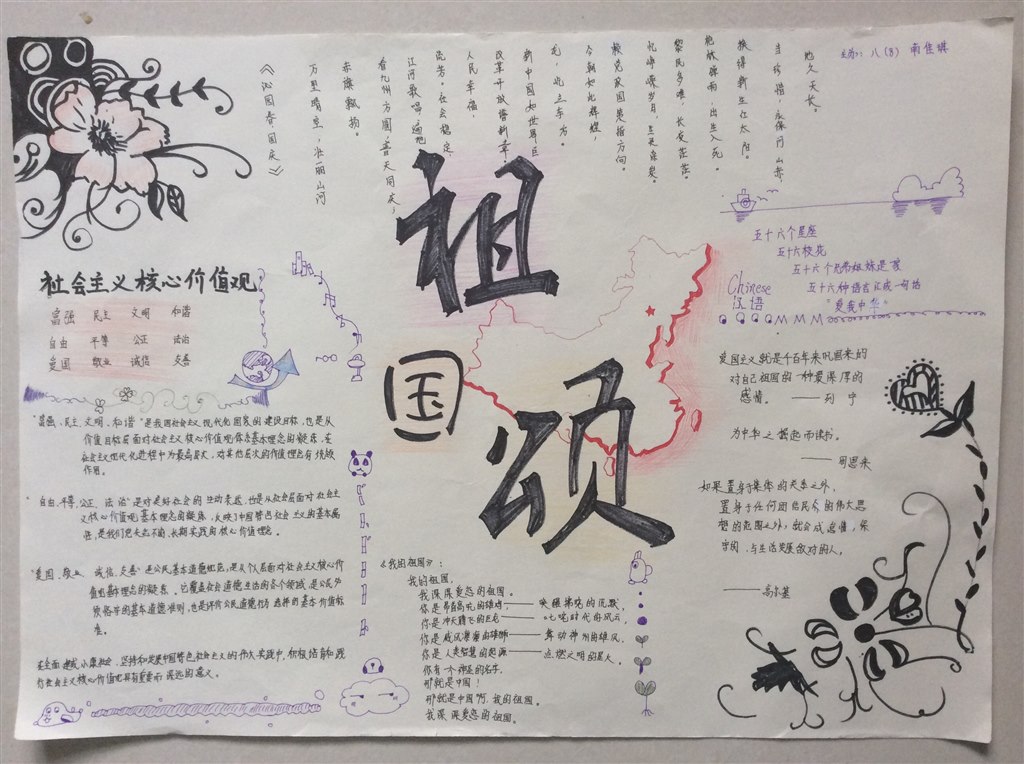 《沁园春国庆》
万里晴空，壮丽山河
赤旗飘扬。
看九州方圆，普天同庆；
江河歌唱，遍地
流芳，社会稳定，
人民幸福，
改革开放谱新章。
新中国如世界巨
龙，屹立东方。
今朝如此辉煌，
赖党家国英指方向。
忆峥嵘岁月，
黎民多难，长夜茫茫。
枪林弹雨，出生入死，
换得新生红太阳。
当珍惜，永保河山
地久天长。
八（8）
祖
国
颂
社会主义核心价值观
富强 民主 文明 和谐
自由 平等 公正 法治
爱国 敬业 诚信 友善
"富强、民主、文明、和谐"是我国社会主义现代化国家的建设目标，也是从
价值目标层面对社会主义核心价值观基本理念的凝练，在
社会主义现代化进程中为最高层次，对其他层次的价值理念有统领
作用。
"自由、平等、公正、法治"是对美好社会的生动表述，也是从社会层面对社会主
义核心价值观基本理念的凝练，反映了中国特色社会主义的基本属
性，是我们党矢志不渝、长期实践的核心价值理念。
"爱国、敬业、诚信、友善"是公民基本道德规范，是从个人层面对社会主义核心价
值观基本理念的凝练。它覆盖社会道德生活的各个领域，是公民必
须恪守的基本道德准则，也是评价公民道德行为选择的基本价值标
准。
在全面建成小康社会、坚持和发展中国特色社会主义的伟大实践中，积极培育和践
行社会主义核心价值观具有重要而深远的意义。
《我的祖国》：
我的祖国，
我深深爱恋的祖国。
你是昂首高吭的雄鸡——唤醒拂晓的沉默，
你是冲天腾飞的巨龙——叱咤时代的风云，
你是威风凛凛的雄狮——舞动神州的雄风，
你是人类智慧的起源——点燃文明的星火。
你有一个神圣的名字，
那就是中国！
那就是中国啊，我的祖国。
我深深爱恋的祖国。
五十六个星座
五十六枝花
五十六个兄弟姐妹是一家
五十六种语言汇成一句话
"爱我中华"
Chinese
汉语
爱国主义就是千百年来巩固来的
对自己祖国的一种最深厚的
感情。 ——列宁
为中华之崛起而读书。
——周恩来
如果置身于集体的关系之外，
置身于任何团结民众的伟大思
想的范围之外，就会成怠惰，保
守的、与生活发展敌对的人。
——高尔基